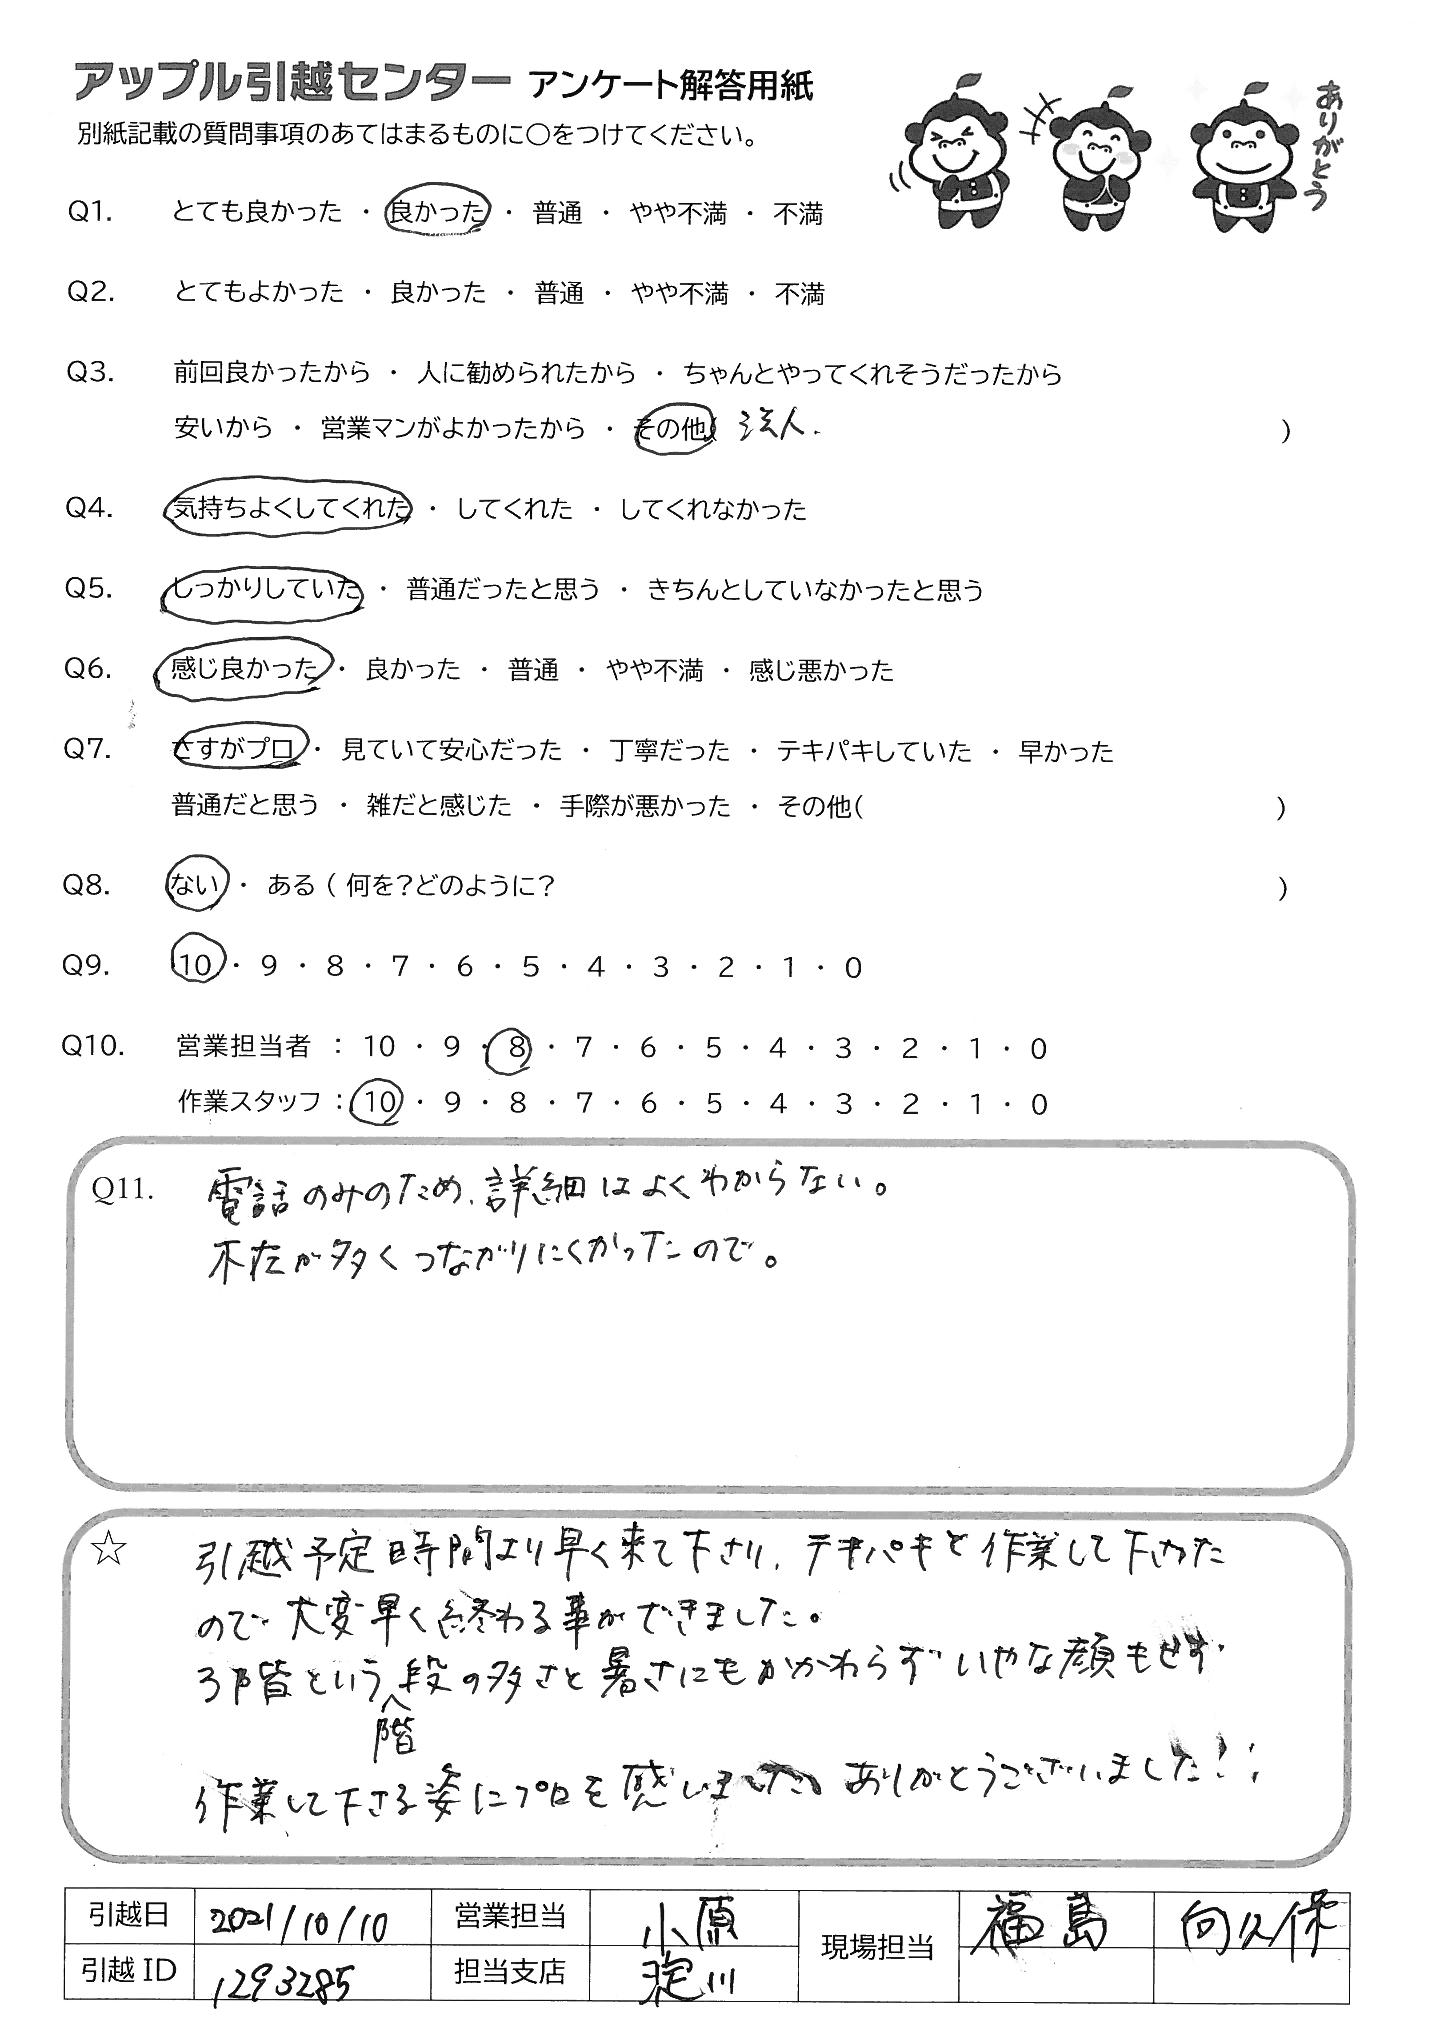 アップル引越センター アンケート解答用紙
別紙記載の質問事項のあてはまるものに〇をつけてください。
ありがとう
Q1. とても良かった ・ 良かった ・ 普通 ・ やや不満 ・ 不満
Q2. とてもよかった ・ 良かった ・ 普通 ・ やや不満 ・ 不満
Q3. 前回良かったから ・ 人に勧められたから ・ ちゃんとやってくれそうだったから
安いから ・ 営業マンがよかったから ・ その他( 法人. )
Q4. 気持ちよくしてくれた ・ してくれた ・ してくれなかった
Q5. しっかりしていた ・ 普通だったと思う ・ きちんとしていなかったと思う
Q6. 感じ良かった ・ 良かった ・ 普通 ・ やや不満 ・ 感じ悪かった
Q7. さすがプロ ・ 見ていて安心だった ・ 丁寧だった ・ テキパキしていた ・ 早かった
普通だと思う ・ 雑だと感じた ・ 手際が悪かった ・ その他( )
Q8. ない ・ ある ( 何を?どのように? )
Q9. 10 ・ 9 ・ 8 ・ 7 ・ 6 ・ 5 ・ 4 ・ 3 ・ 2 ・ 1 ・ 0
Q10. 営業担当者 : 10 ・ 9 ・ 8 ・ 7 ・ 6 ・ 5 ・ 4 ・ 3 ・ 2 ・ 1 ・ 0
作業スタッフ : 10 ・ 9 ・ 8 ・ 7 ・ 6 ・ 5 ・ 4 ・ 3 ・ 2 ・ 1 ・ 0
Q11. 電話のみのため、詳細はよくわからない。
不在が多くつながりにくかったので。
☆ 引越予定時間より早く来て下さり、テキパキと作業して下さった
ので大変早く終わる事ができました。
3階という段の多さと暑さにもかかわらずいやな顔もせず
階
作業して下さる姿にプロを感じました。ありがとうございました!!
引越日 2021/10/10 営業担当 小原 現場担当 福島 向久保
引越ID 1293285 担当支店 淀川